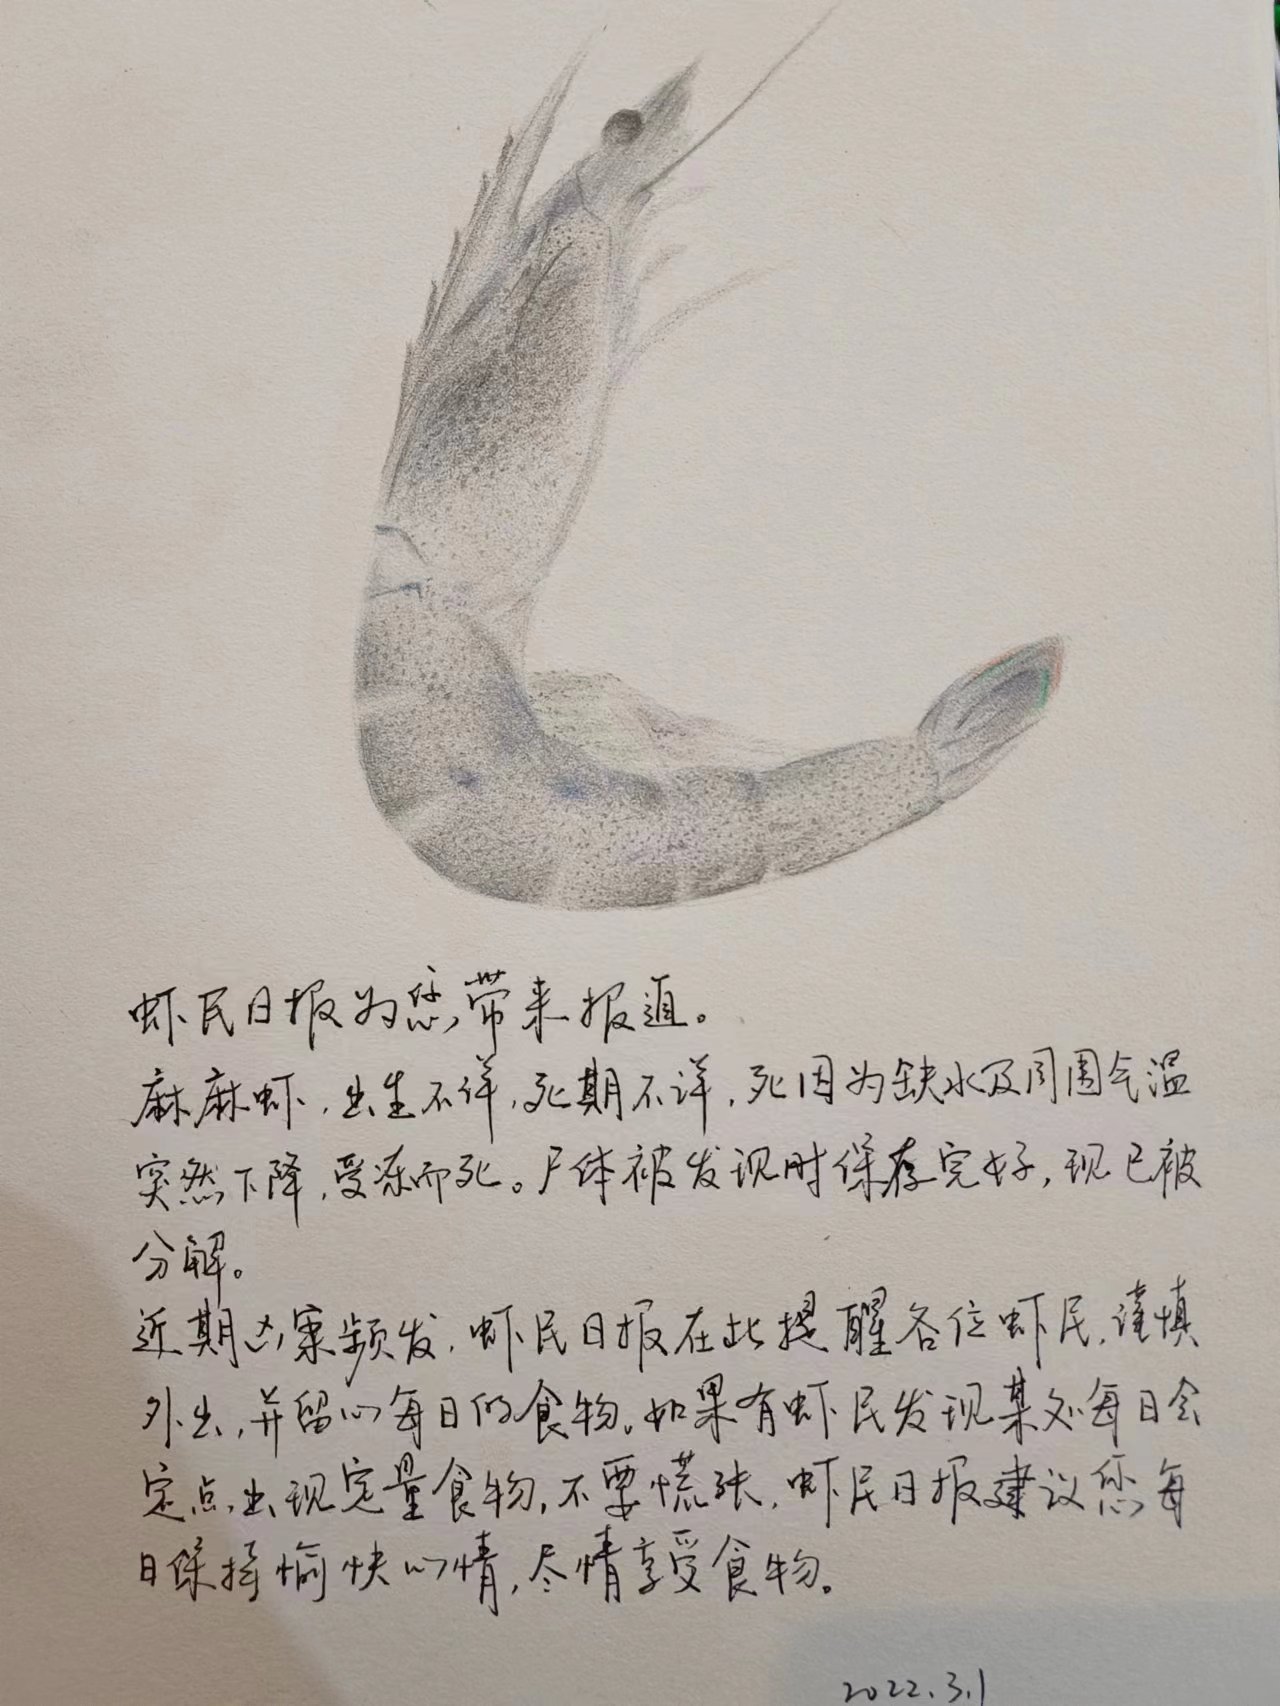 虾民日报为您带来报道。
麻麻虾，出生不详，死期不详，死因为缺水及周围气温
突然下降，受冻而死。尸体被发现时保存完好，现已被
分解。
近期凶案频发，虾民日报在此提醒各位虾民，谨慎
外出，并留心每日的食物。如果有虾民发现某处每日会
定点出现定量食物，不要慌张，虾民日报建议您每
日保持愉快心情，尽情享受食物。
2022.3.1